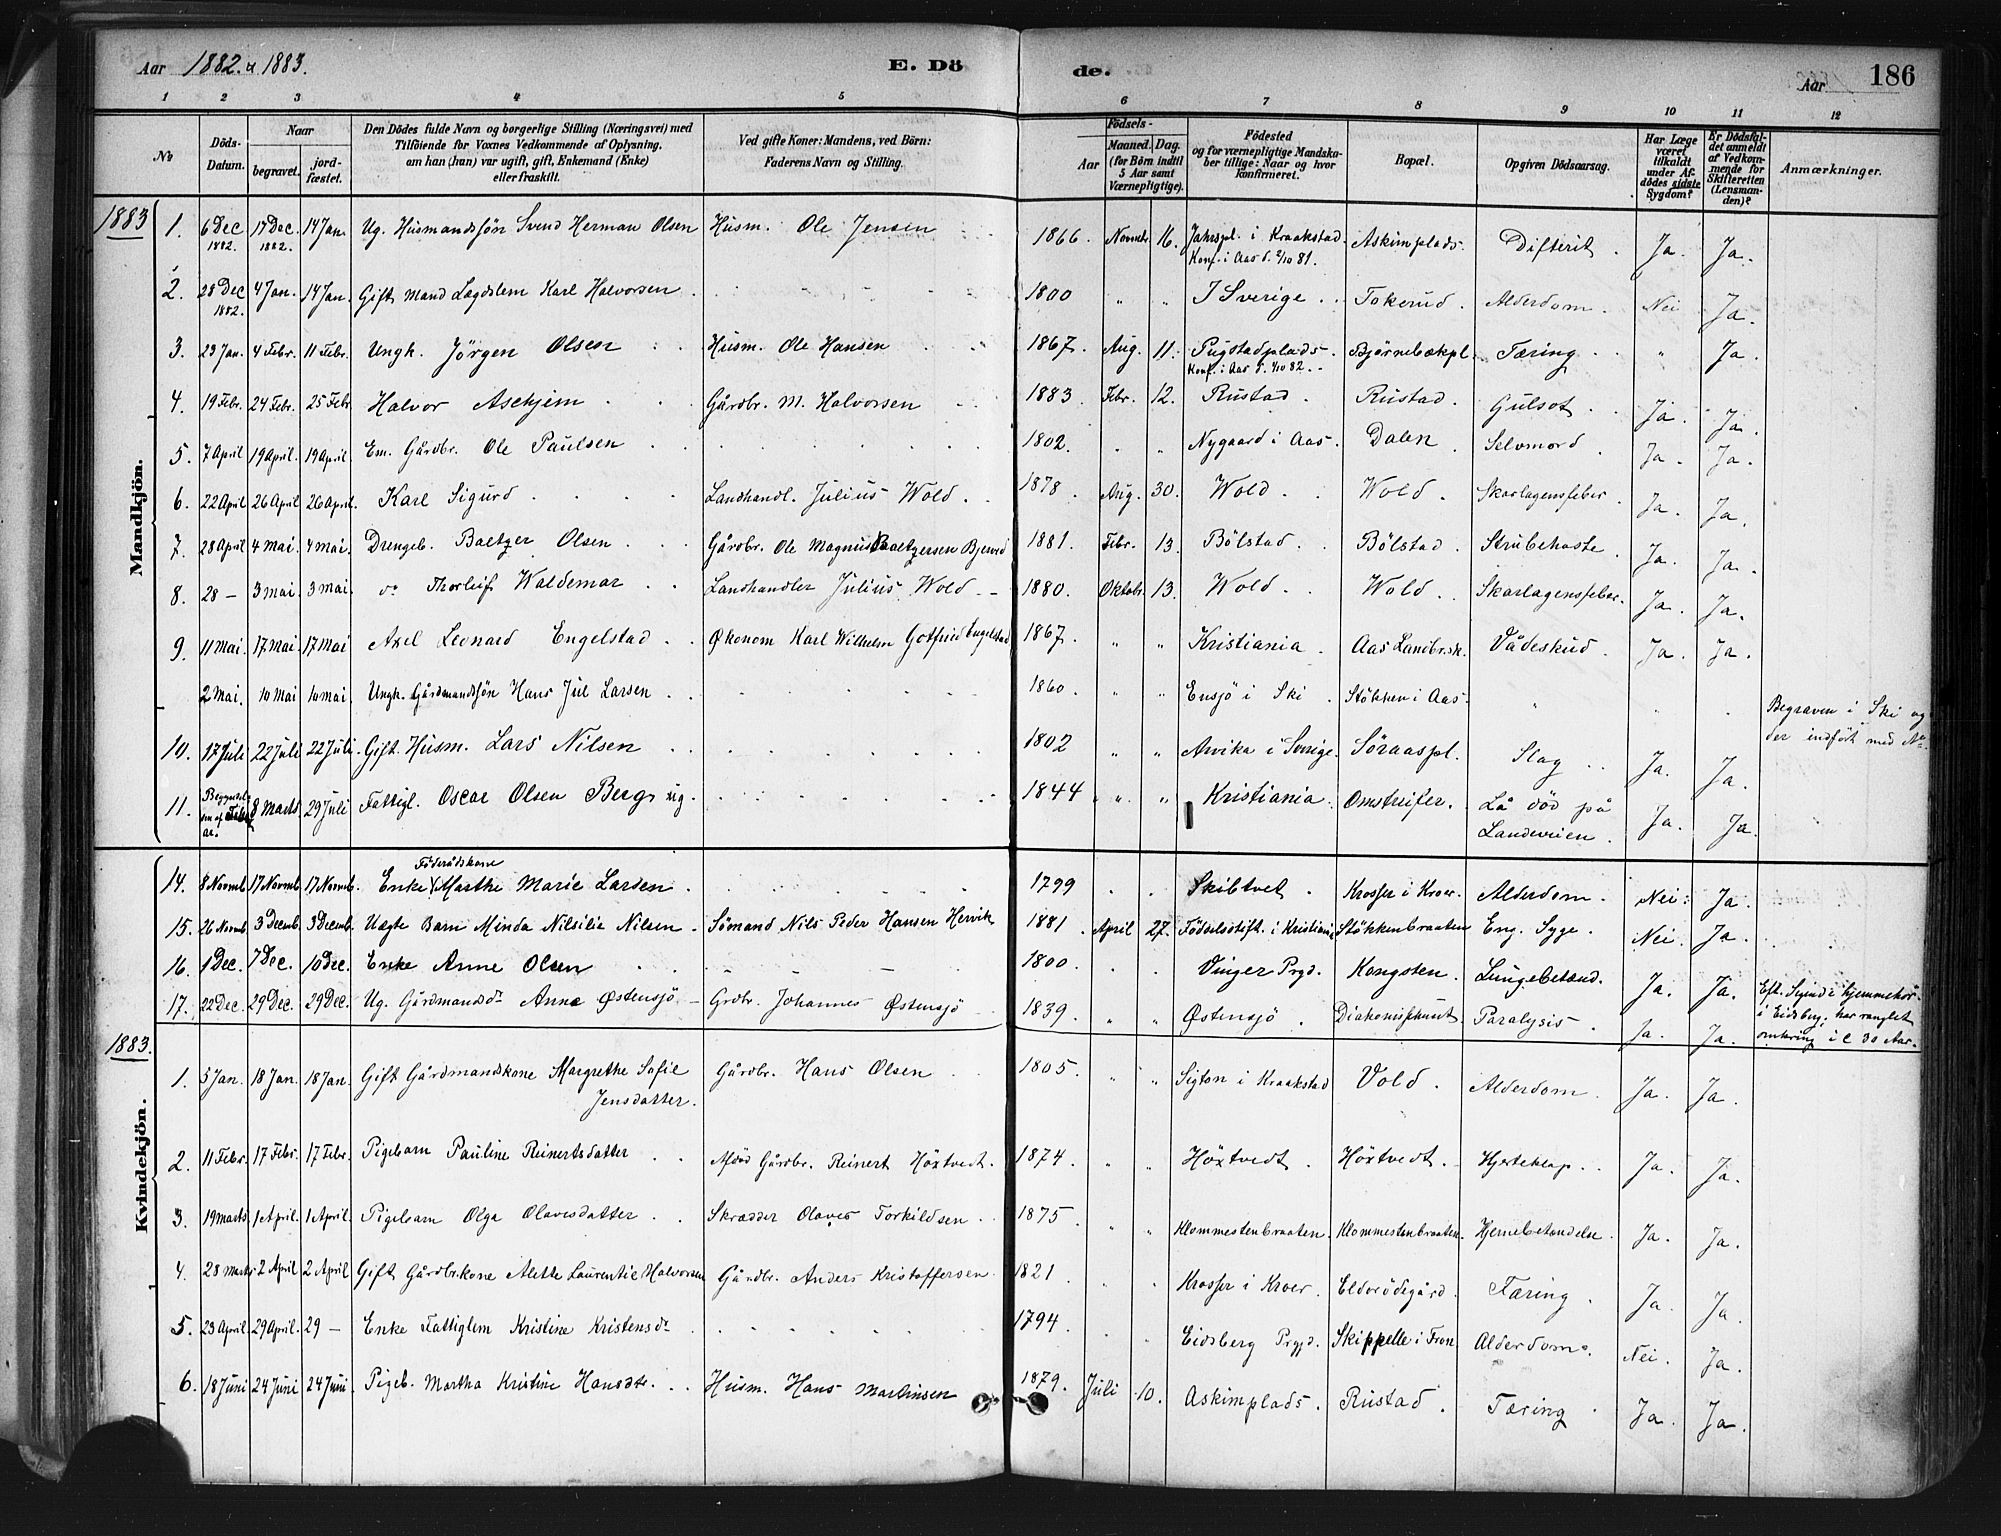 Aar 1882 & 1883. E. Dö de. Aar 186
1 2 3 4 5 6 7 8 9 10 11 12
No Döds-Datum. Naar begravet. jordfæstet. Den Dödes fulde Navn og borgerlige Stilling (Næringsvei) med Tilföiende for Voxnes Vedkommende af Oplysning, om han (hun) var ugift, gift, Enkemand (Enke) eller fraskilt. Ved gifte Koner: Mandens, ved Börn: Faderens Navn og Stilling. Födsels- Aar Maaned. Dag. (for Börn indtil 5 Aar samt Værnepligtige). Födested og for værnepligtige Mandskaber tillige: Naar og hvor konfirmeret. Bopæl. Opgiven Dödsaarsag. Har Læge været tilkaldt under Afdödes sidste Sygdom? Er Dödsfaldet anmeldt af Vedkommende for Skifteretten (Lensmanden)? Anmærkninger.
Mandkjön.
1883 1. 6 Dec 1882. 17 Dec. 1882. 14 Jan. Ug. Husmandssön Svend Herman Olsen Husm. Ole Jensen 1866 Novmbr 16. i Kraakstad Konf. i Aas d. 2/10 81. Askimplads. Difterit. Ja. Ja.
2. 28 Dec 1882. 4 Jan. 14 Jan. Gift Mand Lægdslem Karl Halvorsen 1800 " " I Sverige Tokerud. Alderdom. Nei Ja.
3. 23 Jan. 4 Febr. 11 Febr. Ungk. Jörgen Olsen Husm. Ole Hansen 1867. Aug. 11. Pugstadplads. Konf. i Aas d. 1/10 82. Björnebækpl. Tæring. " Ja.
4. 19 Febr. 24 Febr. 25 Febr Halvor Askjem Gårdbr. M. Halvorsen 1883 Febr. 12. Rustad. Rustad. Gulsot. Ja. Ja.
5. 7 April 19 April. 19 April. Em. Gårdbr. Ole Paulsen 1802. " " Nygaard i Aas. Dalen Selvmord. Ja. Ja.
6. 22 April 26 April 26 April. Karl Sigurd Landhandl. Julius Wold. 1878. Aug. 30. Wold. Wold. Skarlagensfeber. Ja. Ja.
7. 28 April 4 Mai. 4 Mai. Drengeb. Baltzer Olsen Gårdbr. Ole Magnus Baltzersen 1881. Febr. 13. Bölstad. Bölstad. Strubehoste. Ja. Ja.
8. 28 — 3 Mai. 3 Mai. do Thorleif Waldemar Landhandler Julius Wold 1880. Oktobr. 13. Wold. Wold. Skarlagensfeber. Ja. Ja.
9. 11 Mai. 17 Mai. 17 Mai Axel Leonard Engelstad. Økonom Karl Wilhelm Gotfried Engelstad 1867. " " Kristiania. Aas Landbr.sk. Vådeskud. Ja. Ja.
2 Mai. 10 Mai 10 Mai Ungk. Gårdmandssön Hans Jul Larsen 1860. " " Ensjö i Ski. Stökken i Aas. " Begraven i Ski og der indfört med No.
10. 17 Juli 22 Juli 22 Juli. Gift. Husm. Lars Nilsen 1802 " " Arvika i Sverige. Söraaspl. Slag Ja. Ja.
11. Begyndelsen af Febr. 8 Marts. 29 Juli Fattigl. Oscar Olsen Berg ug. 1844 " " Kristiania. Omstreifer. Lå död på Landeveien. Ja. Ja.
Kvindekjön.
14. 8 Novmb. 17 Novmb. 17 Novmb. Enke Föderådskone Marthe Marie Larsen. 1799 Skibtvet. Krosser i Kroer. Alderdom. Nei. Ja.
15. 26 Novmb 3 Decemb. 3 Decemb. Uægte Barn Minda Nilsilie Nilsen Sömand Nils Peder Hansen Hervik 1881. April 27. Födselsstift. i Kristiania Stökkenbraaten Eng. Syge. Nei. Ja.
16. 1 Dec. 7 Dec. 10 Dec. Enke Anne Olsen 1800. Vinger Prgd. Kongsten. Lungebetænd. Ja. Ja.
17. 22 Dec 29 Dec. 29 Dec. Ug. Gårdmandsdr Anne Østensjö Grdbr. Johannes Østensjö 1839. " " Østensjö. Diakonissehuset. Paralysis. Ja. Ja. Eft. i hjemmehör. i Eidsberg, har ranglet omkring i c 30 Aar.
1883. 1. 5 Jan. 18 Jan. 18 Jan. Gift Gårdmandskone Margrethe Sofie Jensdatter. Gårdbr. Hans Olsen 1805. " " Sigton i Kraakstad Vold. Alderdom. Ja. Ja.
2. 11 Febr. 17 Febr. 17 Febr. Pigebarn Pauline Reinertsdatter Afdöd Gårdbr. Reinert Höxtvedt. 1874. " " Höxtvedt. Höxtvedt. Hjerteklap. Ja. Ja.
3. 19 Marts. 1 April. 1 April. Pigebarn Olga Olavesdatter Skrædder Olaves Torkildsen 1875 " " Klommestenbraaten. Klommestenbraaten. Hjernebetændelse. Ja. Ja.
4. 28 Marts 2 April 2 April Gift Gårdbr.kone Alette Laurentie Halvorsen Gårdbr. Anders Kristoffersen 1821 " " Krosser i Kroer. Eldorödegård. Tæring. Ja. Ja.
5. 23 April. 29 April. 29 — Enke Fattiglem Kristine Kristensdr 1794. " " Eidsberg Prgjd. Skippelle i Fron Alderdom. Nei. Ja.
6. 18 Juni 24 Juni 24 Juni. Pigeb. Martha Kristine Hansdtr. Husm. Hans Martinsen 1879. Juli 10. Askimplads. Rustad. Tæring. Ja. Ja.